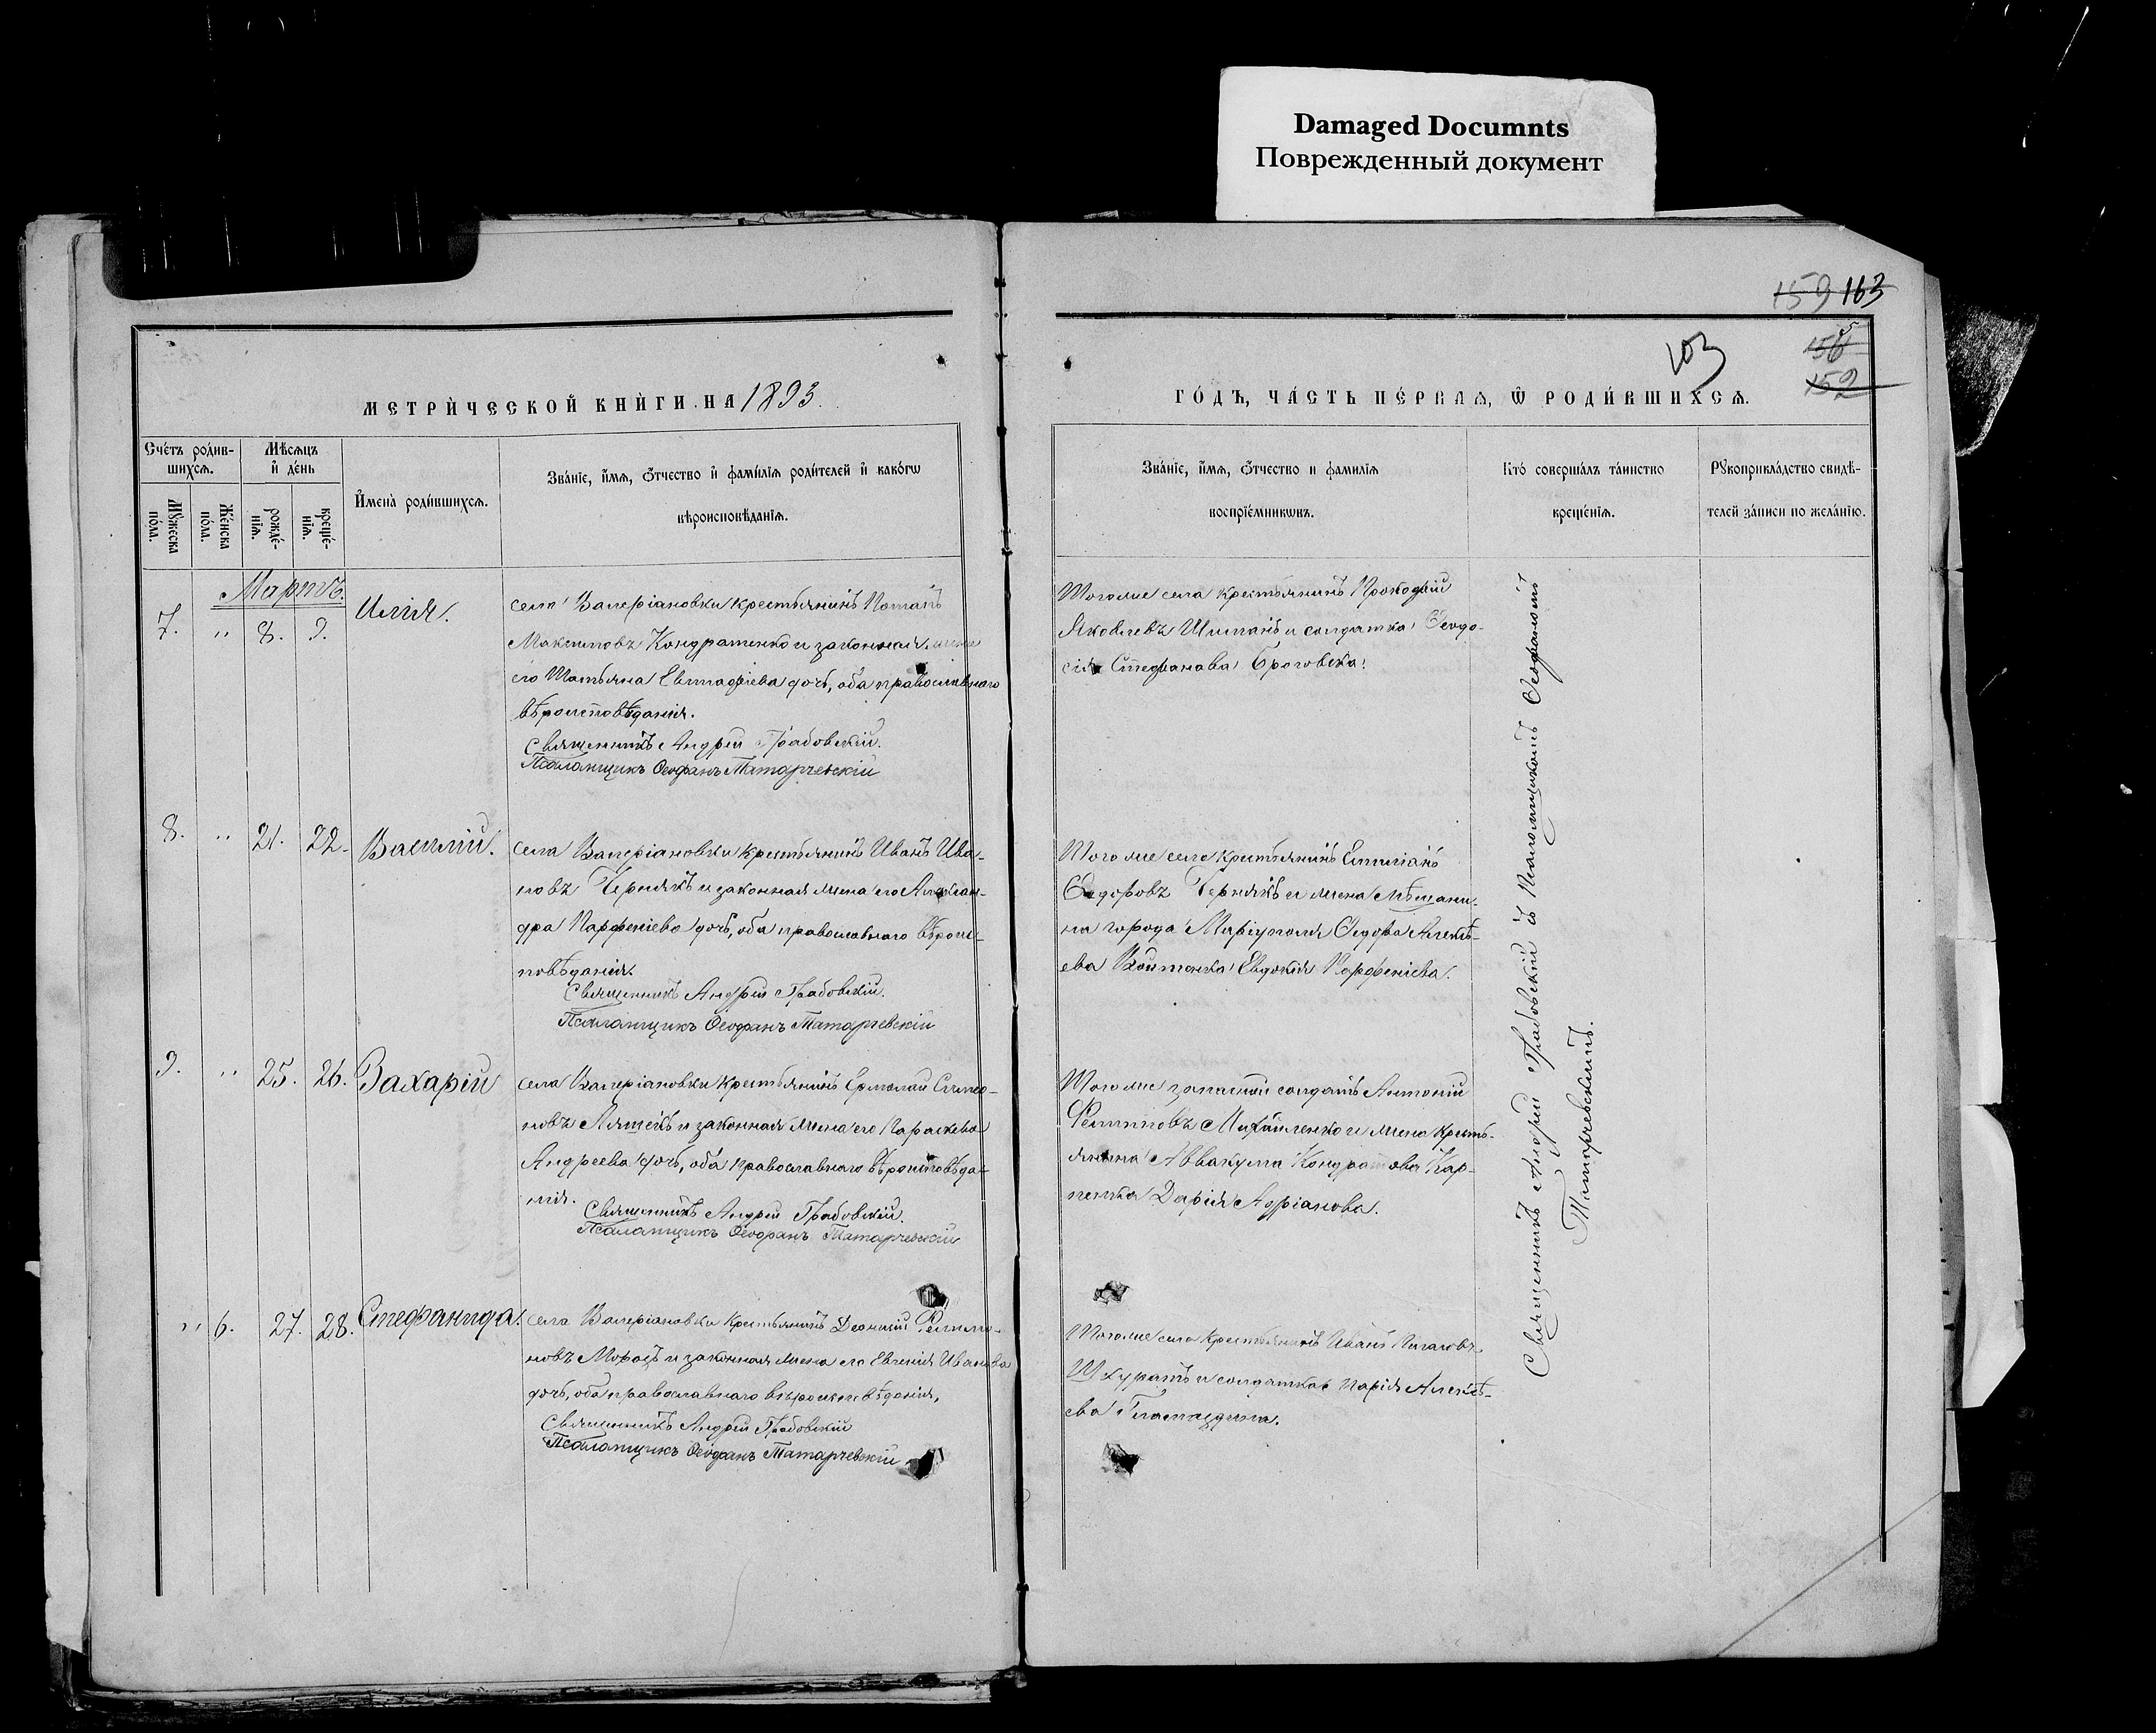 Damaged Documnts
Поврежденный документ
159 163
103
156
152
МЕТРИ́ЧЕСКОЙ КНИ́ГИ НА 1893.
ГО́ДЪ, ЧА́СТЬ ПЕ́РВАѦ, Ѡ҆ РОДИ́ВШИХСѦ.
Сче́тъ роди́в-
шихсѧ.
Мꙋ́жеска по́ла.
Же́нска по́ла.
Мѣ́сѧцъ и҆ де́нь
рожде́-нїѧ.
креще́-нїѧ.
И҆мена̀ роди́вшихсѧ.
Зва́нїе, и҆́мѧ, ѻ҆́тчество и҆ фами́лїѧ роди́телей и҆ како́гѡ
вѣроисповѣ́данїѧ.
Зва́нїе, и҆́мѧ, ѻ҆́тчество и фами́лїѧ
воспрїе́мникѡвъ.
Кто́ соверша́лъ та́инство
креще́нїѧ.
Рꙋкоприкла́дство свидѣ́-
телей за́писи по жела́нїю.
Мартъ.
7. " 8. 9. Илія.
села Валеріановки крестьянинъ Потапъ
Максимовъ Кондратенко и законная жена
его Татьяна Евстафіева дочь, оба православнаго
вѣроисповѣданія.
Священникъ Андрей Грабовскій.
Псаломщикъ Ѳеофанъ Татарчевскій
Тогоже села крестьянинъ Прокофій
Яковлевъ Шпакъ и солдатка Ѳеодо-
сія Стефанова
8. " 21. 22. Василій.
села Валеріановки крестьянинъ Иванъ Ива-
новъ Чернякъ и законная жена его Алексан-
дра Парфеніева дочь, оба православнаго вѣроис-
повѣданія.
Священникъ Андрей Грабовскій.
Псаломщикъ Ѳеофанъ Татарчевскій
Тогоже села крестьянинъ Емиліанъ
Ѳедоровъ Чернякъ и жена мѣщани-
на города Маріуполя Ѳедора Алексѣ-
ева Войтенка Евдокія Парфеніева.
9. " 25. 26. Захарій
села Валеріановки крестьянинъ Ермолай Симео-
новъ и законная жена его Параскева
Андреева дочь, оба православнаго вѣроисповѣда-
нія.
Священникъ Андрей Грабовскій.
Псаломщикъ Ѳеофанъ Татарчевскій
Тогоже запасный солдатъ Антоній
Филипповъ Михайленко и жена кресть-
янина Аввакума Кондратова Кар-
пенка Дарія Адріанова.
" 6. 27. 28. Стефанида.
села Валеріановки крестьянинъ Деонисій Филимо-
новъ Морозъ и законная жена его Евгенія Иванова
дочь, оба православнаго вѣроисповѣданія,
Священникъ Андрей Грабовскій
Псаломщикъ Ѳеофанъ Татарчевскій
Тогоже села крестьянинъ Иванъ
Шкуратъ и солдатка Марія Алексѣ-
ева
Священникъ Андрей Грабовскій съ Псаломщикомъ Ѳеофаномъ
Татарчевскимъ.